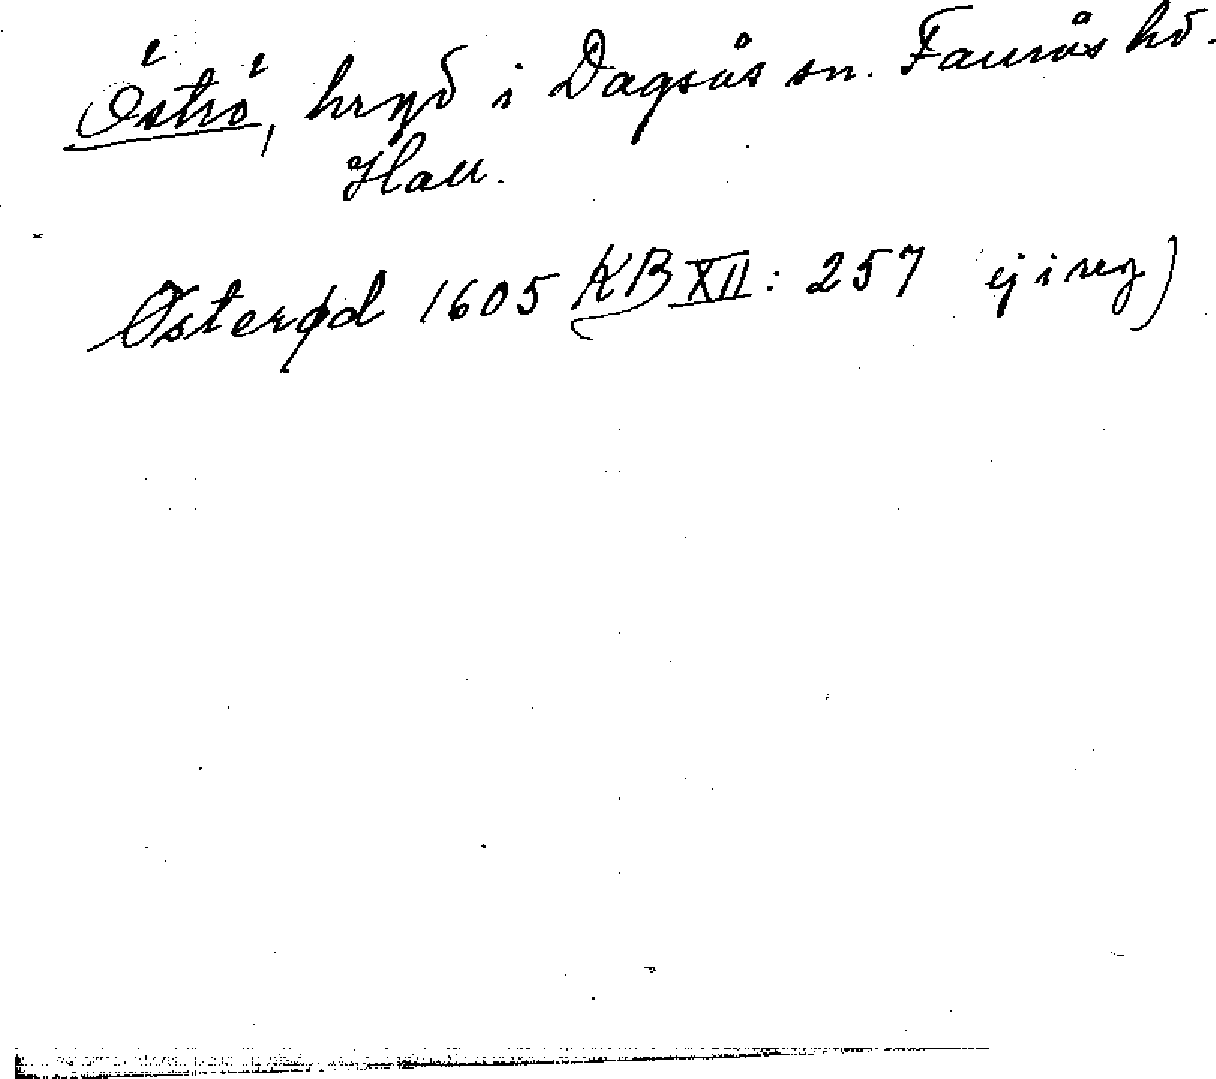 Öströ, hryd i Dagsås sn. Faurås hd.
Hall.
Østerød 1605 KB XII: 257 ej i reg)